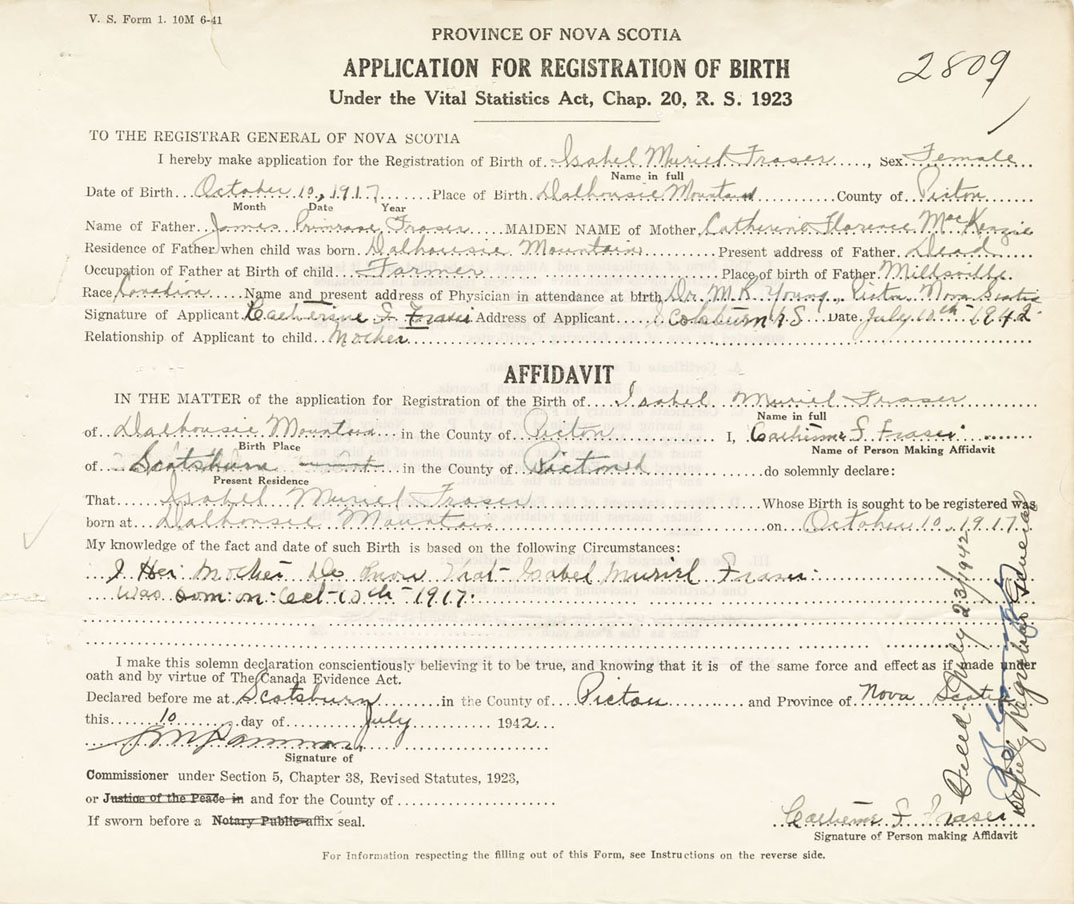 V. S. Form 1. 10M 6-41
PROVINCE OF NOVA SCOTIA
2809
APPLICATION FOR REGISTRATION OF BIRTH
Under the Vital Statistics Act, Chap. 20, R. S. 1923
TO THE REGISTRAR GENERAL OF NOVA SCOTIA
I hereby make application for the Registration of Birth of Isabel Muriel Fraser, Sex Female
Name in full
Date of Birth October 10, 1917 Place of Birth Dalhousie Mountain County of Pictou
Month Date Year
Name of Father James Primrose Fraser MAIDEN NAME of Mother Catherine Florence MacKenzie
Residence of Father when child was born Dalhousie Mountain Present address of Father Dead
Occupation of Father at Birth of child Farmer Place of birth of Father Millsville
Race Canadian Name and present address of Physician in attendance at birth Dr. M. R. Young, Pictou Nova Scotia
Signature of Applicant Catherine F Fraser Address of Applicant Scotsburn N S Date July 10th 1942
Relationship of Applicant to child Mother
AFFIDAVIT
IN THE MATTER of the application for Registration of the Birth of Isabel Muriel Fraser
Name in full
of Dalhousie Mountain in the County of Pictou I, Catherine F. Fraser
Birth Place Name of Person Making Affidavit
of Scotsburn in the County of Pictou do solemnly declare:
Present Residence
That Isabel Muriel Fraser Whose Birth is sought to be registered was
born at Dalhousie Mountain on October 10, 1917
My knowledge of the fact and date of such Birth is based on the following Circumstances:
I Her Mother Do Know That Isabel Muriel Fraser
was born on Oct 10th 1917.
I make this solemn declaration conscientiously believing it to be true, and knowing that it is of the same force and effect as if made under
oath and by virtue of The Canada Evidence Act.
Declared before me at Scotsburn in the County of Pictou and Province of Nova Scotia
this 10 day of July 1942
Signature of
Commissioner under Section 5, Chapter 38, Revised Statutes, 1923,
or Justice of the Peace in and for the County of
If sworn before a Notary Public affix seal.
Catherine F Fraser
Signature of Person making Affidavit
For Information respecting the filling out of this Form, see Instructions on the reverse side.
Filed July 23/1942
Deputy Registrar General